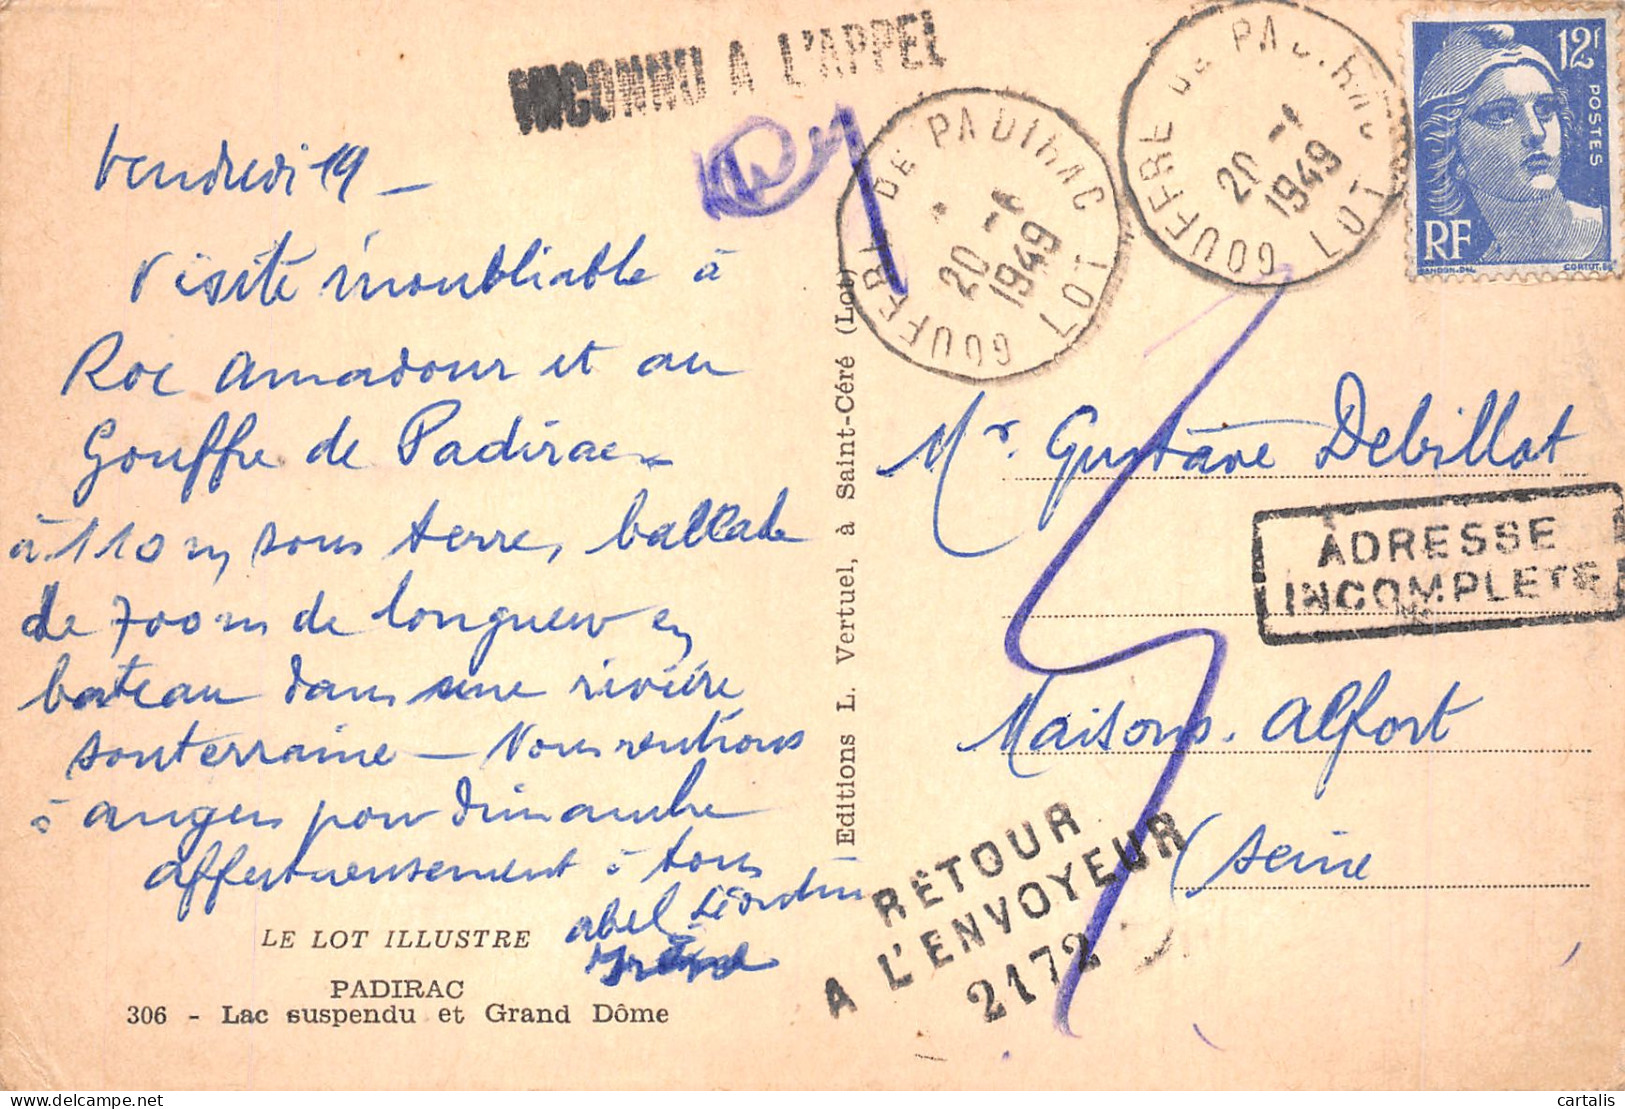 INCONNU A L'APPEL
GOUFFRE DE PADIRAC
20 - 
1949
LOT
GOUFFRE DE PADIRAC
20 - 
1949
LOT
12F
POSTES
RF
GANDON.DEL.
CORTOT.SC
Vendredi 19 -
Visite inoubliable à
Roc Amadour et au
Gouffre de Padirac -
à 110 m sous terre, ballade
de 700 m de longueur en
bateau dans une rivière
souterraine - Nous rentrons
à angers pour dimanche
affectueusement à tous
abel
LE LOT ILLUSTRE
PADIRAC
306 - Lac suspendu et Grand Dôme
Editions L. Vertuel, à Saint-Céré (Lot)
Mr. Gustave Debillot
ADRESSE
INCOMPLETE
Maisons-Alfort
(Seine
RETOUR
A L'ENVOYEUR
2172
cartalis
delcampe.net